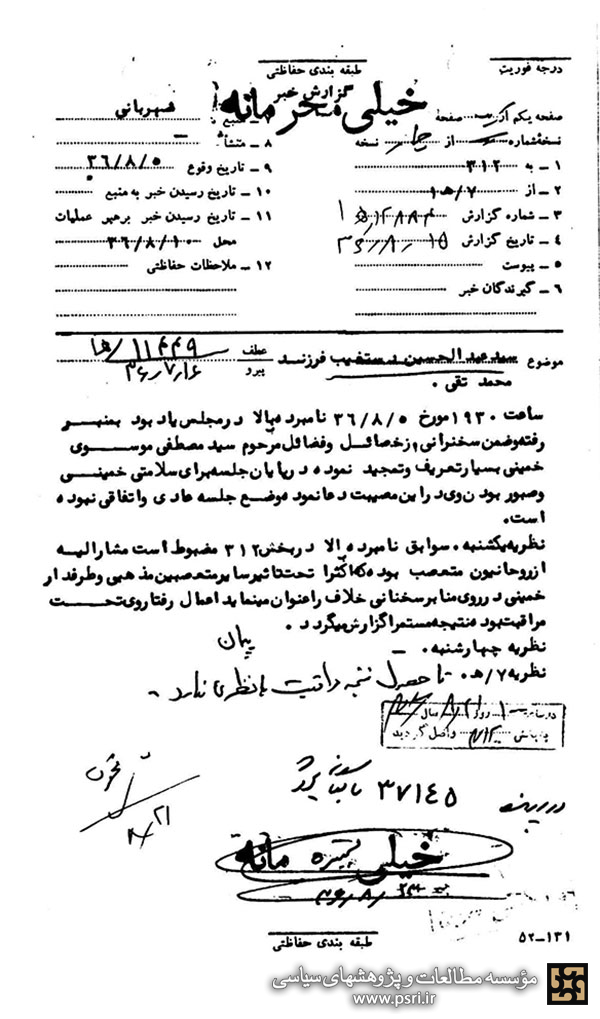 درجه فوریت
طبقه بندی حفاظتی
گزارش خبر
خیلی محرمانه
صفحه یکم از صفحه
نسخه شماره از چهار نسخه
۱ ـ به ۳۱۲
۲ ـ از ۷/ه‍
۳ ـ شماره گزارش
۴ ـ تاریخ گزارش ۳۶/۸/۱۵
۵ ـ پیوست
۶ ـ گیرندگان خبر
شهربانی
۸ ـ منشأ ـ
۹ ـ تاریخ وقوع ۳۶/۸/۵
۱۰ ـ تاریخ رسیدن خبر به منبع
۱۱ ـ تاریخ رسیدن خبر برهبر عملیات
محل ۳۶/۸/۱۰
۱۲ ـ ملاحظات حفاظتی
موضوع سید عبدالحسین دستغیب فرزند
محمد تقی .
عطف ۱۱۴۴۹/ه‍
پیرو ۳۶/۷/۱۶
ساعت ۱۹۳۰ مورخ ۳۶/۸/۵ نامبرده بالا در مجلس یاد بود بمنبر
رفته وضمن سخنرانی از خصائل وفضائل مرحوم سید مصطفی موسوی
خمینی بسیار تعریف وتمجید نموده در پایان جلسه برای سلامتی خمینی
وصبور بودن وی در این مصیبت دعا نمود وضع جلسه عادی واتفاقی نبوده
است.
نظریه یکشنبه . سوابق نامبرده بالا در بخش ۳۱۲ مضبوط است مشارالیه
از روحانیون متعصب بوده که اکثرا تحت تاثیر سایر متعصبین مذهبی وطرفدار
خمینی در روی منابر سخنانی خلاف را عنوان مینماید اعمال رفتار وی تحت
مراقبت بوده نتیجه مستمرا گزارش میگردد .
نظریه چهارشنبه . ـ
نظریه ۷/ه‍ . تا حصول نتیجه مراقبت نظری ندارد .
در ساعت ۱۰ روز سال
به بخش ۳۱۲ واصل گردید
۳۷۱۴۵
۸/۲۱
خیلی محرمانه
طبقه بندی حفاظتی
۵۲-۱۳۱
مؤسسه مطالعات و پژوهشهای سیاسی
www.psri.ir